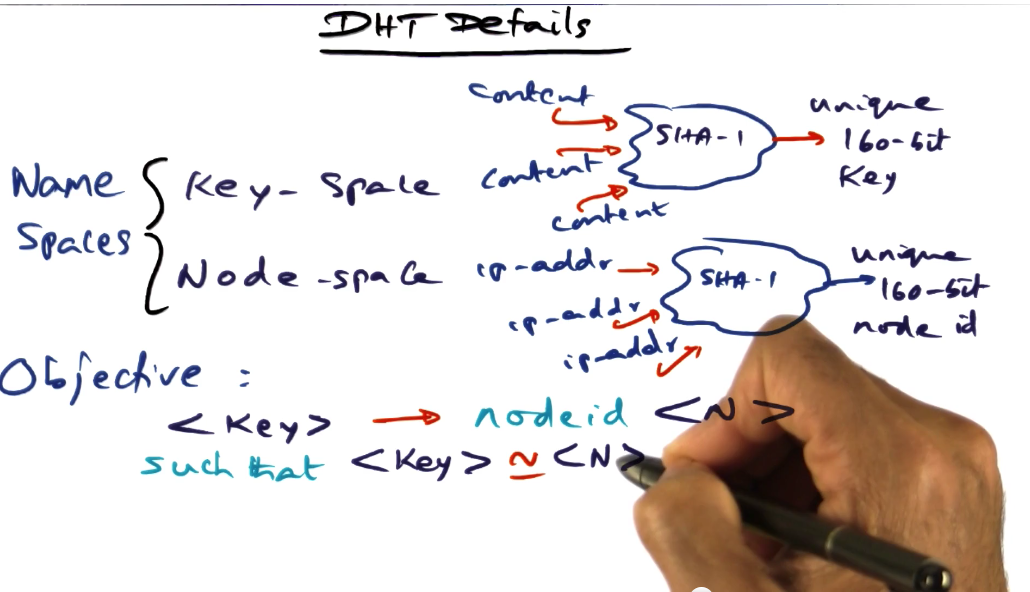 DHT Details
Name Spaces
Key-Space
content
content
content
SHA-1
unique
160-bit
Key
Node-space
ip-addr
ip-addr
ip-addr
SHA-1
unique
160-bit
node id
Objective :
<Key> → nodeid <N>
such that <Key> ≃ <N>